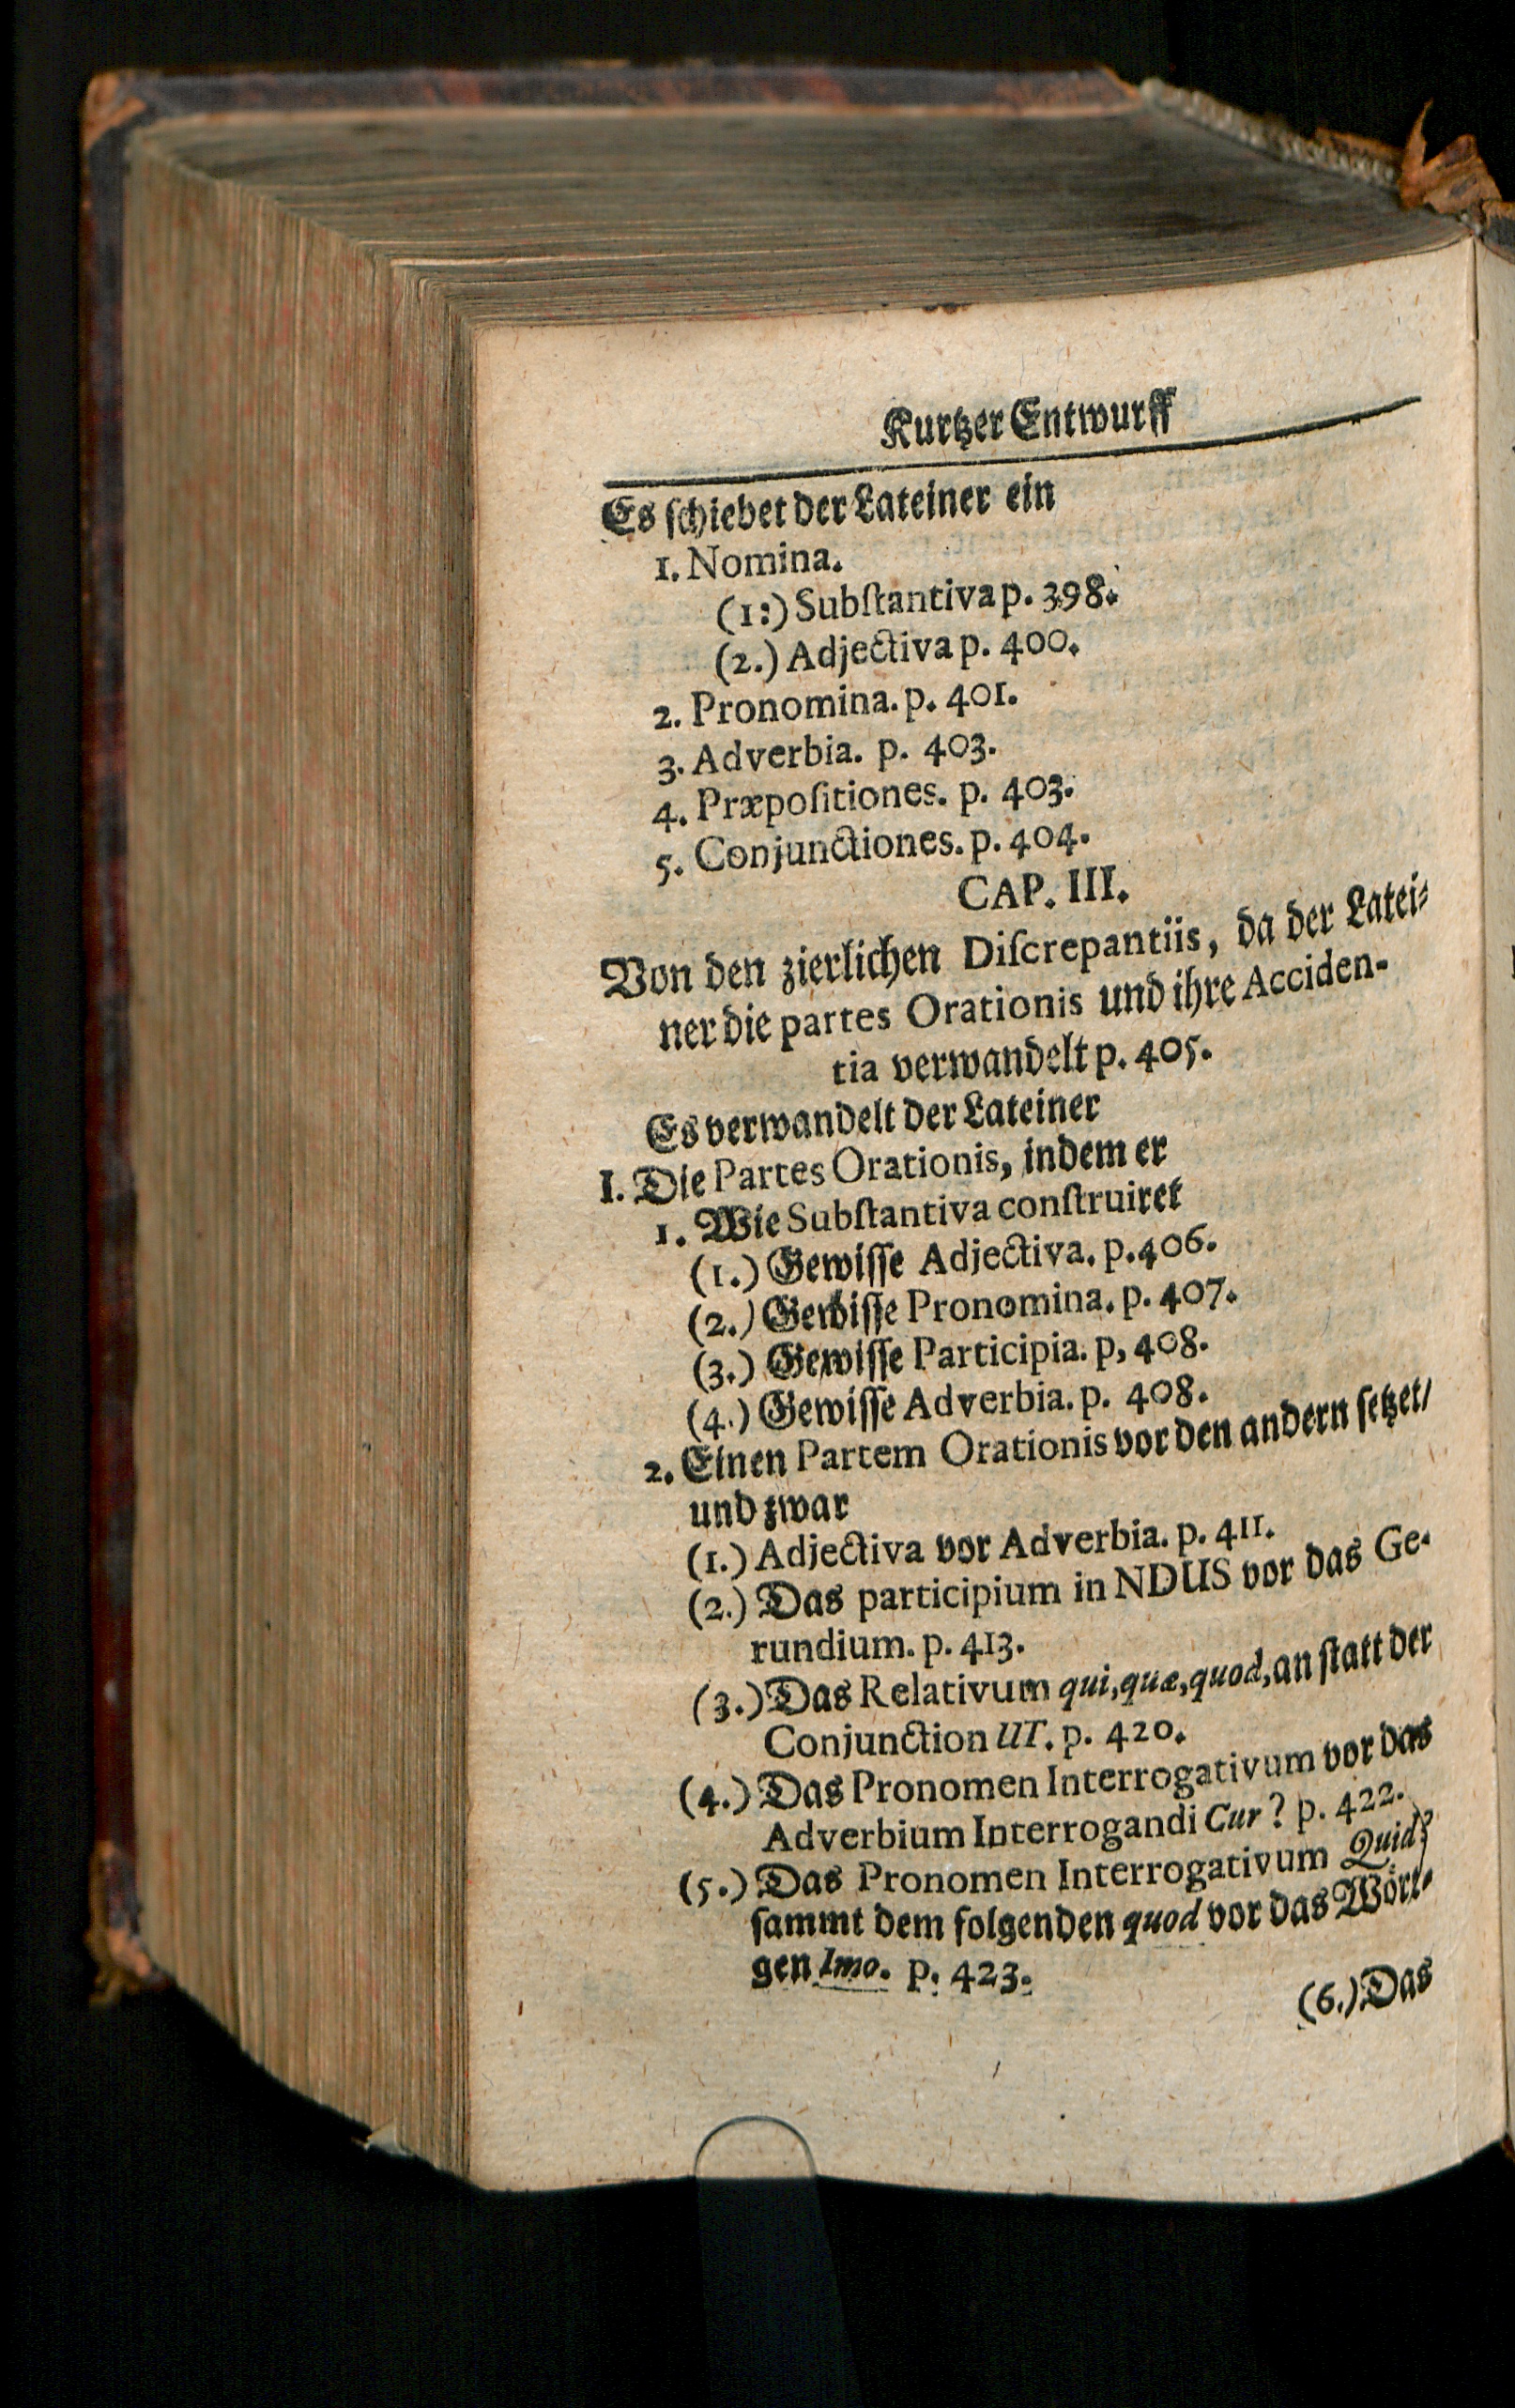 Kurtzer Entwurff
Es ſchiebet der Lateiner ein
1. Nomina.
(1:) Subſtantiva p. 398.
(2.) Adjectiva p. 400.
2. Pronomina. p. 401.
3. Adverbia. p. 403.
4. Præpoſitiones. p. 403.
5. Conjunctiones. p. 404.
CAP. III.
Von den zierlichen Diſcrepantiis, da der Latei⸗
ner die partes Orationis und ihre Acciden-
tia verwandelt p. 405.
Es verwandelt der Lateiner
I. Die Partes Orationis, indem er
1. Wie Subſtantiva conſtruiret
(1.) Gewiſſe Adjectiva. p. 406.
(2.) Gewiſſe Pronomina. p. 407.
(3.) Gewiſſe Participia. p, 408.
(4.) Gewiſſe Adverbia. p. 408.
2. Einen Partem Orationis vor den andern ſetzet/
und zwar
(1.) Adjectiva vor Adverbia. p. 411.
(2.) Das participium in NDUS vor das Ge-
rundium. p. 413.
(3.) Das Relativum qui, quæ, quod, an ſtatt der
Conjunction UT. p. 420.
(4.) Das Pronomen Interrogativum vor das
Adverbium Interrogandi Cur? p. 422.
(5.) Das Pronomen Interrogativum Quid?
ſammt dem folgenden quod vor das Wört⸗
gen Imo. p. 423.
(6.) Das